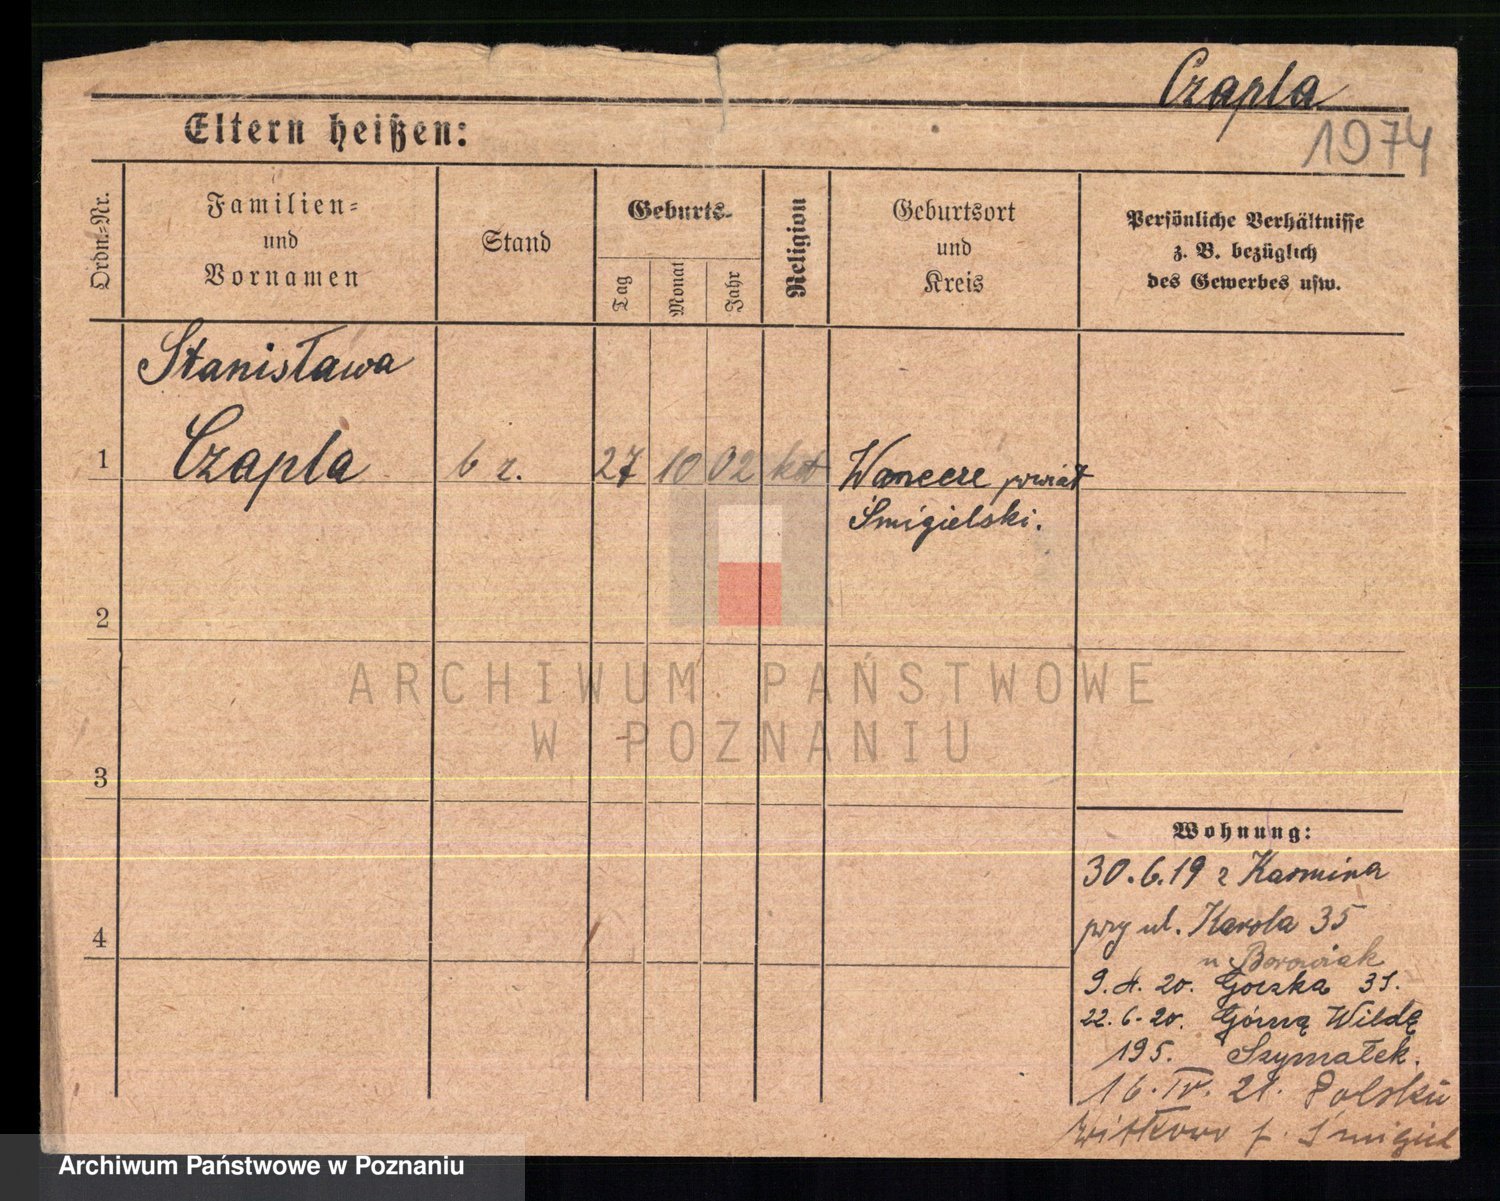 Czapla
1974
Eltern heißen:
Ordn.-Nr.
Familien-
und
Vornamen
Stand
Geburts-
Tag
Monat
Jahr
Religion
Geburtsort
und
Kreis
Persönliche Verhältnisse
z. B. bezüglich
des Gewerbes usw.
Stanisława
1 Czapla 6 27 10 02 kat powiat
Śmigielski.
2
ARCHIWUM PAŃSTWOWE
W POZNANIU
3
Wohnung:
30.6.19 z Karmina
przy ul. Karola 35
4
u Borowiak
9. 4. 20. 31.
22.6.20. Górną Wildę
195. Szymałek.
16. IV. 21.
p. Śmigiel
Archiwum Państwowe w Poznaniu